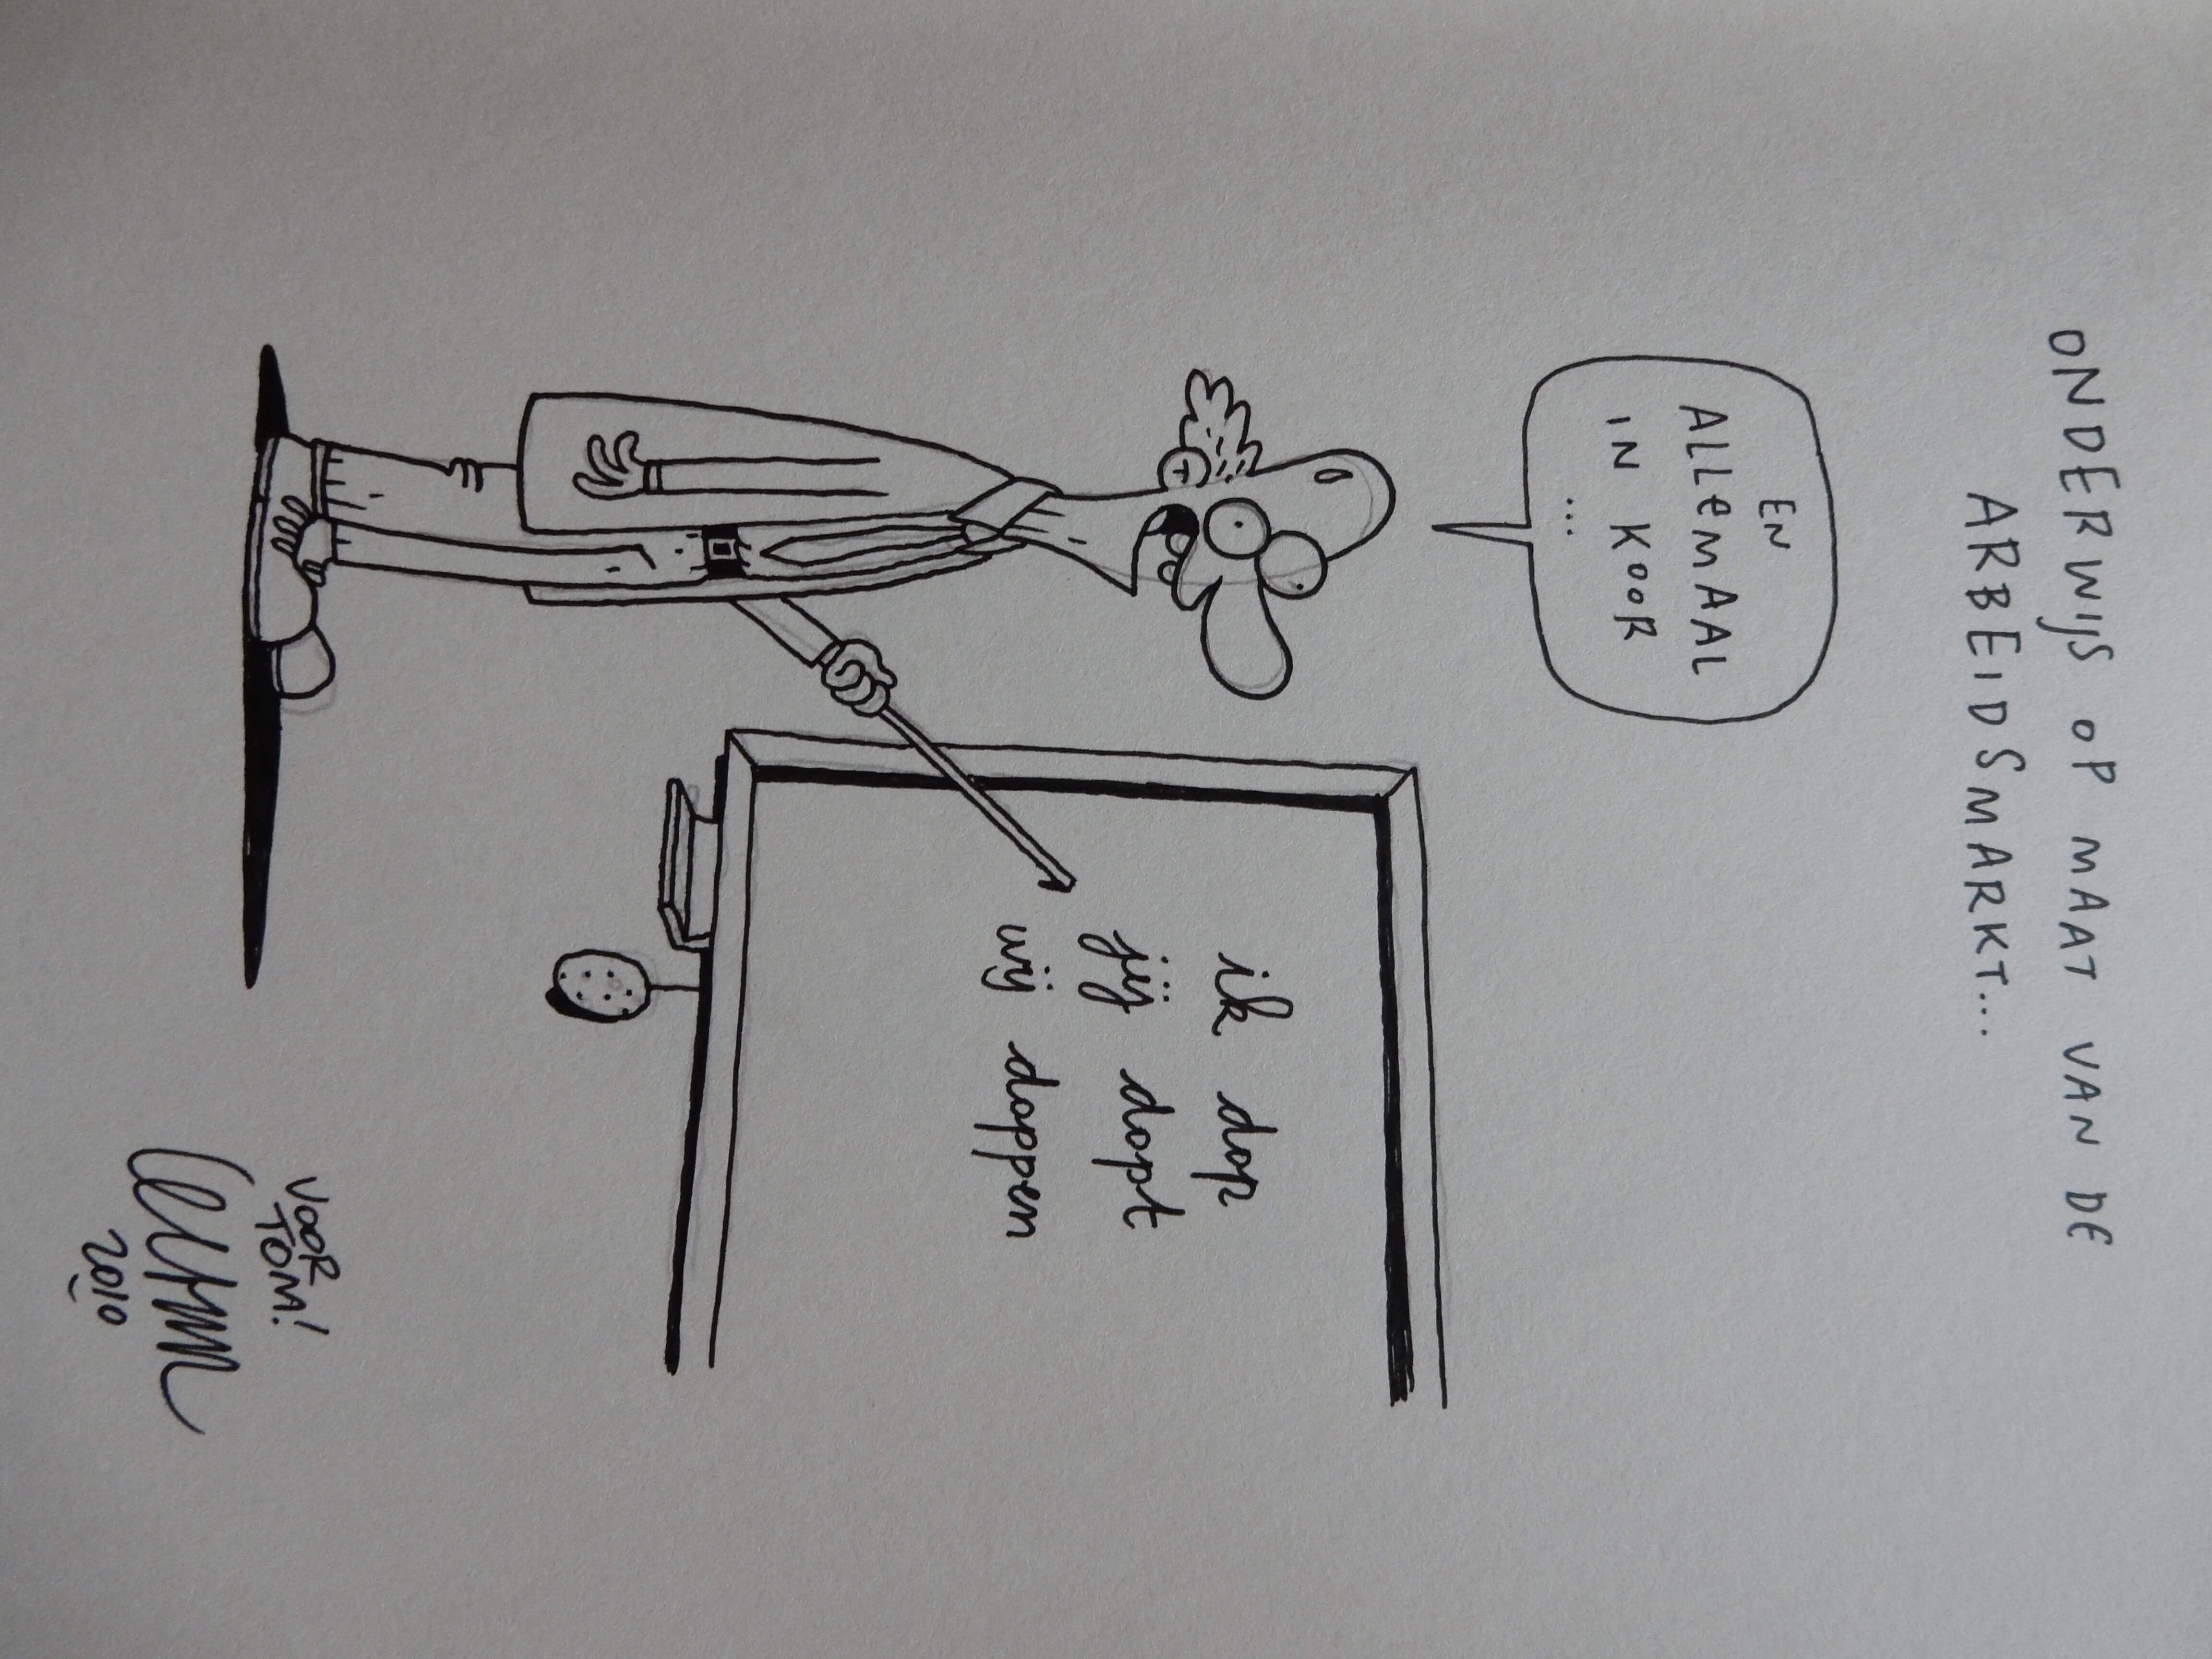 ONDERWIJS OP MAAT VAN DE
ARBEIDSMARKT...
EN
ALLEMAAL
IN KOOR
...
ik dop
jij dopt
wij doppen
VOOR
TOM!
2010